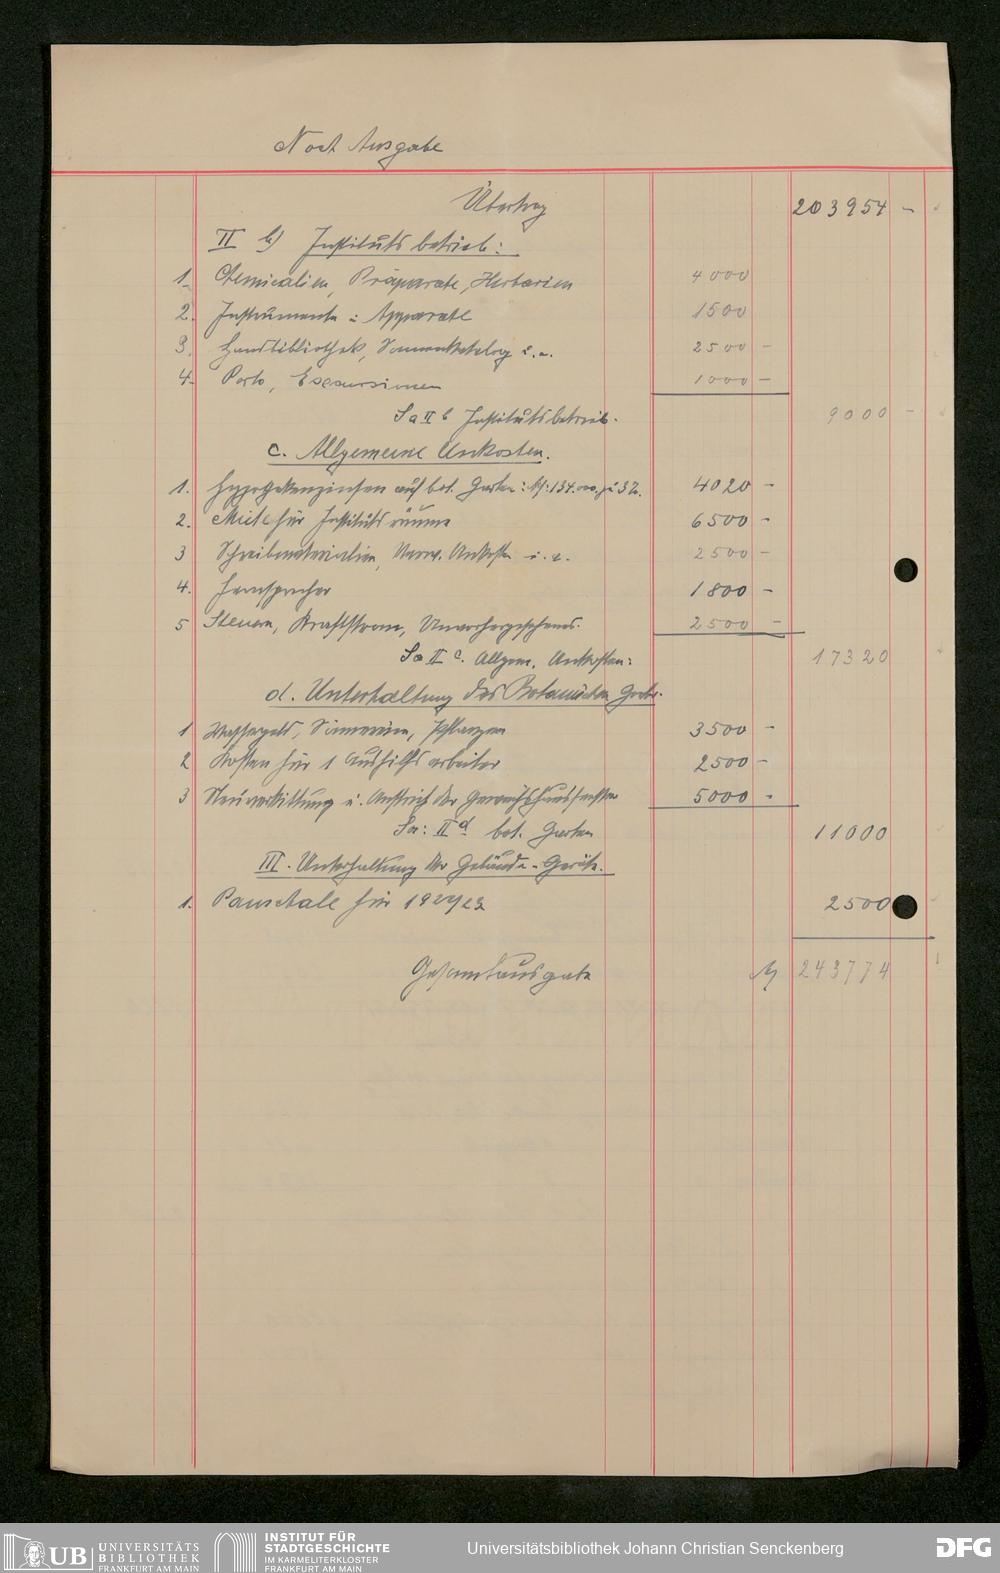 Noch Ausgabe
Übertrag 203954 -
II b) Institutsbetrieb:
1. Chemicalien, Präparate, Herbarien 4000
2. Instrumente u. Apparate 1500
3. Handbibliothek, Samenkatalog u. a. 2500 -
4. Porto, Excursionen 1000 -
Sa II b Institutsbetrieb. 9000 -
c. Allgemeine Unkosten.
1. Hypothekenzinsen auf bot. Garten: M. 134.000. zu 3%. 4020 -
2. Miete für Institutsräume 6500 -
3 Schreibmaterialien, Verw. Unkosten u. a. 2500 -
4. Fernsprecher 1800 -
5 Steuern, Kraftstrom, Unvorhergesehenes. 2500 -
Sa II c. Allgem. Unkosten: 17320
d. Unterhaltung des Botanischen Gartens.
1 Wassergeld, Sämereien, Pflanzen 3500 -
2 Kosten für 1 Aushilfsarbeiter 2500 -
3 Neuverkittung u. Anstrich der Gewächshausfenster 5000 -
Sa: II d bot. Garten 11000
III. Unterhaltung der Gebäude - Geräte.
1. Pauschale für 1922/23 2500
Gesamtausgabe M 243774
UB UNIVERSITÄTS
BIBLIOTHEK
FRANKFURT AM MAIN
INSTITUT FÜR
STADTGESCHICHTE
IM KARMELITERKLOSTER
FRANKFURT AM MAIN
Universitätsbibliothek Johann Christian Senckenberg
DFG